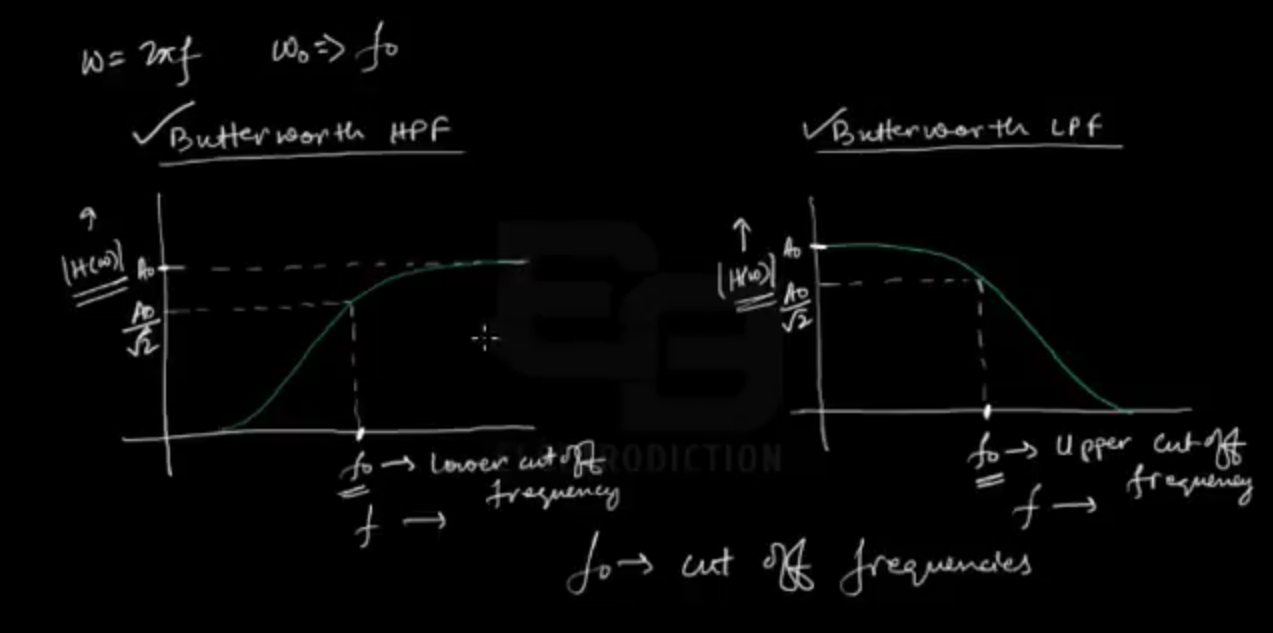 ω = 2πf ω₀ => f₀
✓Butterworth HPF
↑
|H(ω)|
A₀
A₀/√2
f₀ → Lower cut off
frequency
f →
✓Butterworth LPF
↑
|H(ω)|
A₀
A₀/√2
f₀ → Upper cut off
frequency
f →
f₀ → cut off frequencies